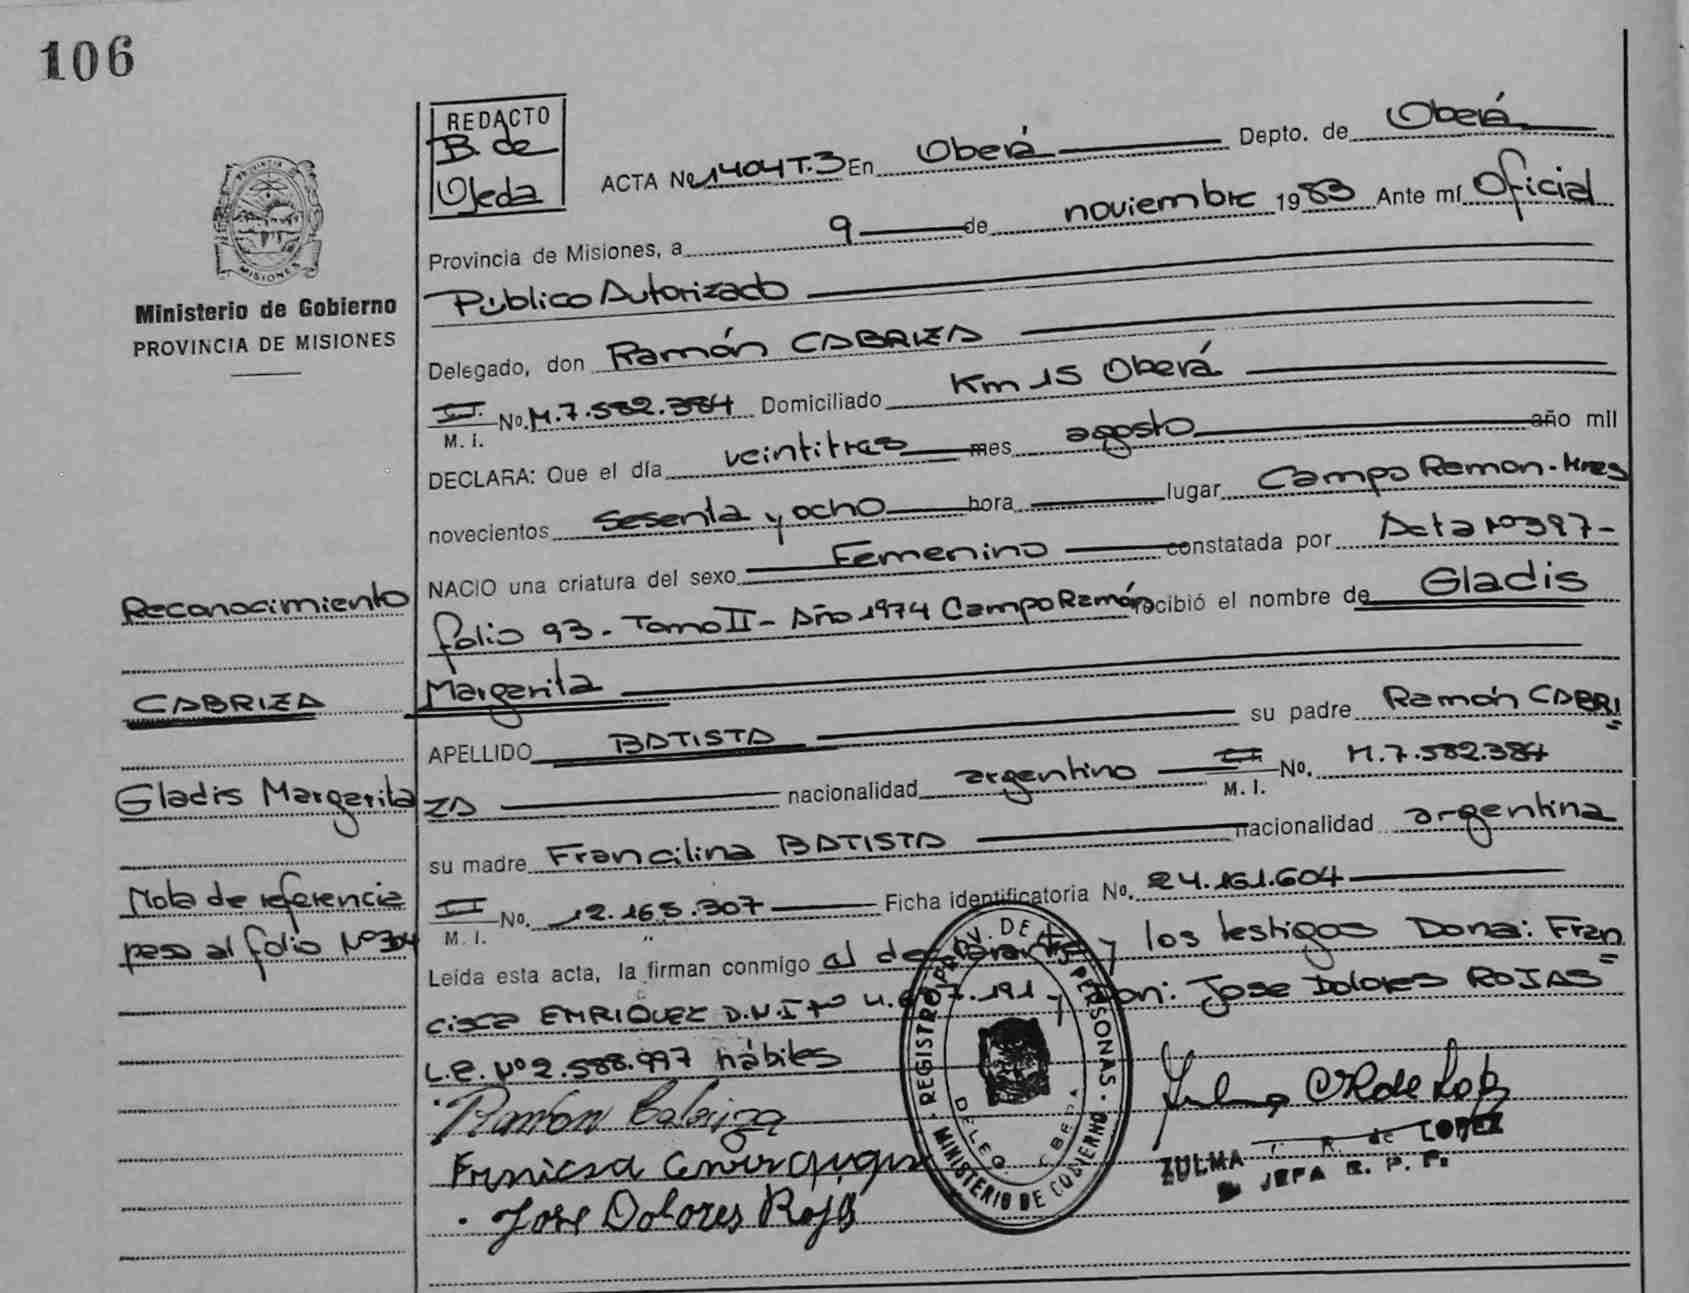 106
REDACTO
B. de
Ojeda
ACTA Nº 1404 T.3 En Oberá Depto. de Oberá
Provincia de Misiones, a 9 de noviembre 1983 Ante mí Oficial
Público Autorizado
MISIONES
Ministerio de Gobierno
PROVINCIA DE MISIONES
Delegado, don Ramón CABRIZA
M. I. No. M.7.582.384 Domiciliado Km 15 Oberá
DECLARA: Que el día veintitres mes agosto año mil
novecientos sesenta y ocho hora lugar Campo Ramon-Mnes
NACIO una criatura del sexo Femenino constatada por Acta Nº 397-
folio 93 - Tomo II - Año 1974 Campo Ramón recibió el nombre de Gladis
Margarita
APELLIDO BATISTA su padre Ramón CABRI
ZA nacionalidad argentino M. I. No. M.7.582.384
su madre Francilina BATISTA nacionalidad argentina
M. I. No. 12.165.307 Ficha identificatoria No. 24.161.604
Leída esta acta, la firman conmigo el declarante y los testigos Dona: Fran
cisca ENRIQUEZ D.N.I Nº 4.607.191 y Don: Jose Dolores ROJAS
L.E. Nº 2.588.997 hábiles
Reconocimiento
CABRIZA
Gladis Margarita
Nota de referencia
pasa al folio Nº 304
Ramon Cabriza
Jose Dolores Rojas
REGISTRO PROV. DE LAS PERSONAS
MINISTERIO DE GOBIERNO
ZULMA R. de LOPEZ
JEFA R. P. P.